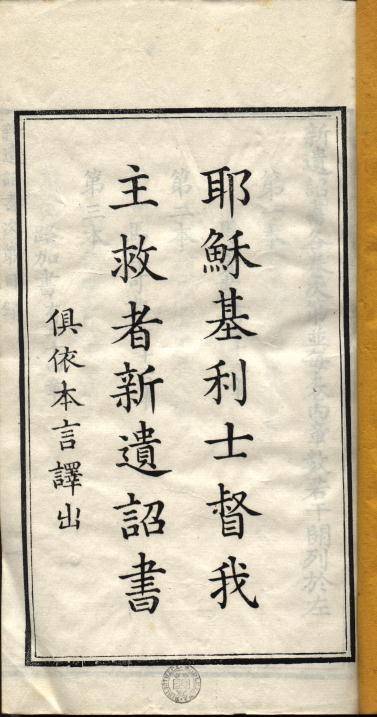 耶穌基利士督我
主救者新遺詔書
俱依本言譯出